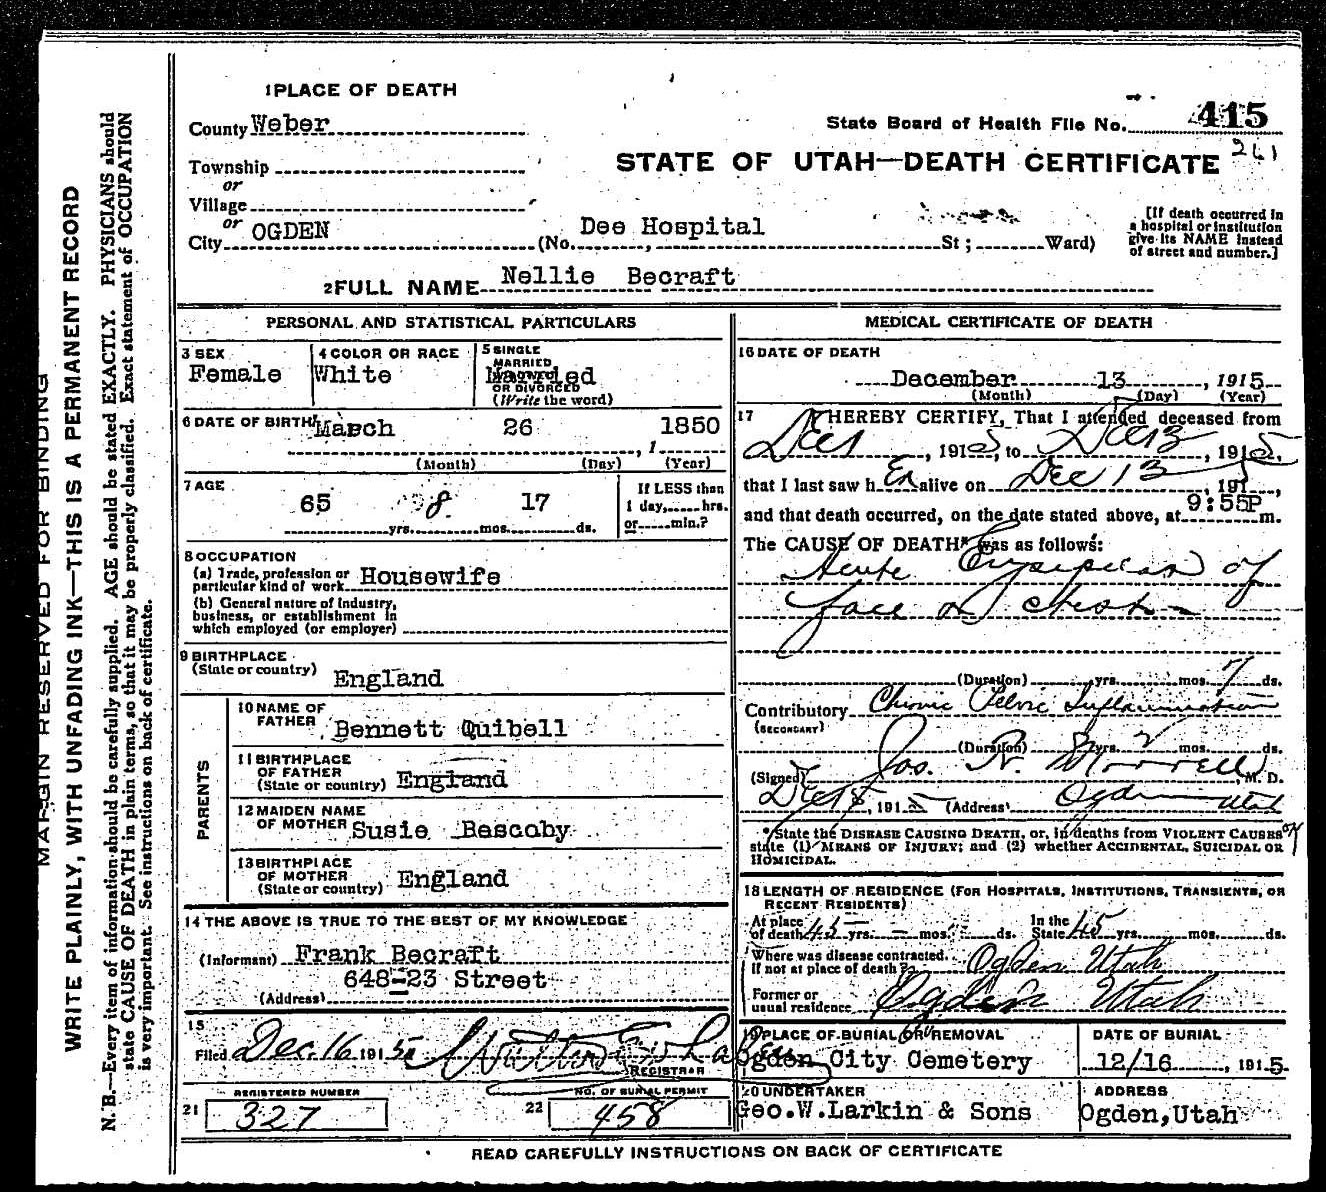 1 PLACE OF DEATH
County Weber
State Board of Health File No. 415
Township
261
STATE OF UTAH—DEATH CERTIFICATE
or
Village
or
City OGDEN (No. Dee Hospital , St ; Ward)
[If death occurred in
a hospital or institution
give its NAME instead
of street and number.]
2 FULL NAME Nellie Becraft
PERSONAL AND STATISTICAL PARTICULARS
3 SEX
Female
4 COLOR OR RACE
White
5 SINGLE
MARRIED
WIDOWED
OR DIVORCED
(Write the word)
Married
6 DATE OF BIRTH
March 26 1850
, 1
(Month) (Day) (Year)
7 AGE
65 8 17
yrs. mos. ds.
If LESS than
1 day, hrs.
or min.?
8 OCCUPATION
(a) Trade, profession or
particular kind of work Housewife
(b) General nature of industry,
business, or establishment in
which employed (or employer)
9 BIRTHPLACE
(State or country) England
PARENTS
10 NAME OF
FATHER Bennett Quibell
11 BIRTHPLACE
OF FATHER
(State or country) England
12 MAIDEN NAME
OF MOTHER Susie Bescoby
13 BIRTHPLACE
OF MOTHER
(State or country) England
14 THE ABOVE IS TRUE TO THE BEST OF MY KNOWLEDGE
(Informant) Frank Becraft
648-23 Street
(Address)
15
Filed Dec. 16 1915
REGISTRAR
REGISTERED NUMBER
21 327
NO. OF BURIAL PERMIT
22 458
MEDICAL CERTIFICATE OF DEATH
16 DATE OF DEATH
December 13 , 1915
(Month) (Day) (Year)
17 I HEREBY CERTIFY, That I attended deceased from
, 1915, to Dec 13 , 1915,
that I last saw h er alive on Dec 13 , 1915,
and that death occurred, on the date stated above, at 9:55P m.
The CAUSE OF DEATH* was as follows:
Acute Erysipelas of
face & chest
(Duration) yrs. mos. 7 ds.
Contributory Chronic Pelvic Inflammation
(SECONDARY)
(Duration) yrs. 2 mos. ds.
(Signed) Jos. R. Morrell M. D.
, 1915 (Address) Ogden Utah
*State the DISEASE CAUSING DEATH, or, in deaths from VIOLENT CAUSES
state (1) MEANS OF INJURY; and (2) whether ACCIDENTAL, SUICIDAL OR
HOMICIDAL.
18 LENGTH OF RESIDENCE (FOR HOSPITALS, INSTITUTIONS, TRANSIENTS, OR
RECENT RESIDENTS)
At place
of death 45 yrs. - mos. ds.
In the
State 45 yrs. mos. ds.
Where was disease contracted.
If not at place of death? Ogden Utah
Former or
usual residence Ogden Utah
19 PLACE OF BURIAL OR REMOVAL
Ogden City Cemetery
DATE OF BURIAL
12/16 , 1915
20 UNDERTAKER
Geo.W.Larkin & Sons
ADDRESS
Ogden,Utah
READ CAREFULLY INSTRUCTIONS ON BACK OF CERTIFICATE
MARGIN RESERVED FOR BINDING
WRITE PLAINLY, WITH UNFADING INK—THIS IS A PERMANENT RECORD
N. B.—Every item of information should be carefully supplied. AGE should be stated EXACTLY. PHYSICIANS should
state CAUSE OF DEATH in plain terms, so that it may be properly classified. Exact statement of OCCUPATION
is very important. See instructions on back of certificate.